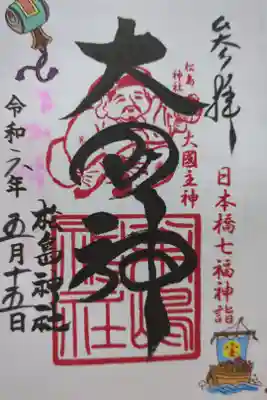 参拝
日本橋七福神詣
松島
神社
大國主神
大黒神
松島神社
令和六年
五月十五日